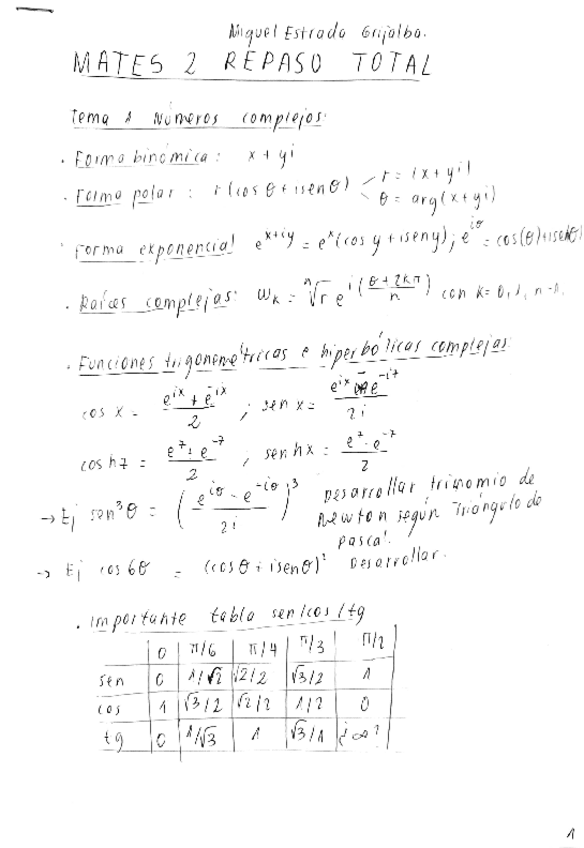 Miguel Estrada Grijalbo.
MATES 2 REPASO TOTAL
Tema 1 Números complejos:
· Forma binómica: x + yi
· Forma polar: r(cos θ + i sen θ) < r = |x + yi|
θ = arg(x + yi)
· Forma exponencial e^{x+iy} = e^x(cos y + i sen y); e^{iθ} = cos(θ) + i sen θ
· Raíces complejas: ω_k = ⁿ√r e^{i(\frac{θ+2kπ}{n})} con k = 0, 1, n-1.
· Funciones trigonométricas e hiperbólicas complejas:
cos x = \frac{e^{ix} + e^{-ix}}{2} ; sen x = \frac{e^{ix} - e^{-ix}}{2i}
cosh z = \frac{e^z + e^{-z}}{2} ; senh x = \frac{e^z - e^{-z}}{2}
→ Ej sen³θ = (\frac{e^{iθ} - e^{-iθ}}{2i})³ Desarrollar trinomio de
Newton según Triángulo de
Pascal.
→ Ej cos 6θ = (cos θ + i sen θ) Desarrollar.
· Importante tabla sen/cos/tg
0 π/6 π/4 π/3 π/2
sen 0 1/√2 √2/2 √3/2 1
cos 1 √3/2 √2/2 1/2 0
tg 0 1/√3 1 √3/1 ¿∞?
1